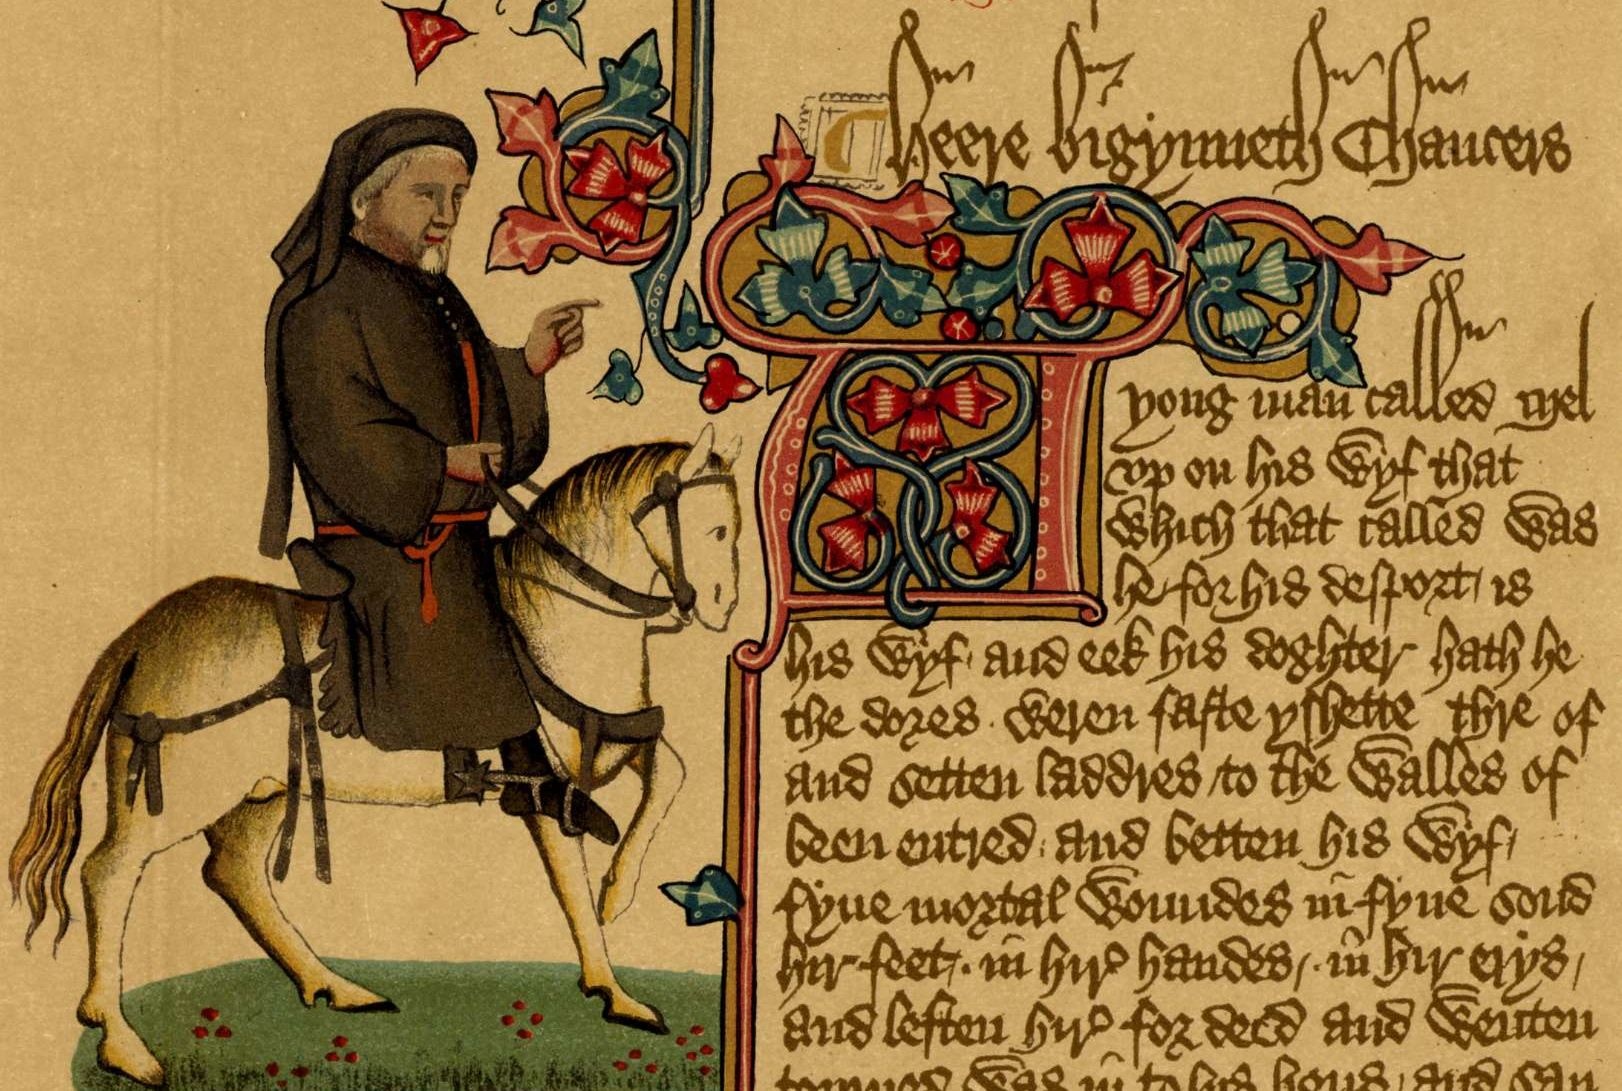 Heere bigynneth Chaucers
A yong man called Mel
vp on his wyf that
which that called was
he for his desport / is
his wyf and eek his doghter hath he
the dores weren faste yshette thre of
and setten laddres / to the walles of
been entred and betten his wyf /
fyue mortal woundes in fyue sond
hir feet / in hir handes / in hir erys /
and leften hir for deed and wenten
was in to his hous